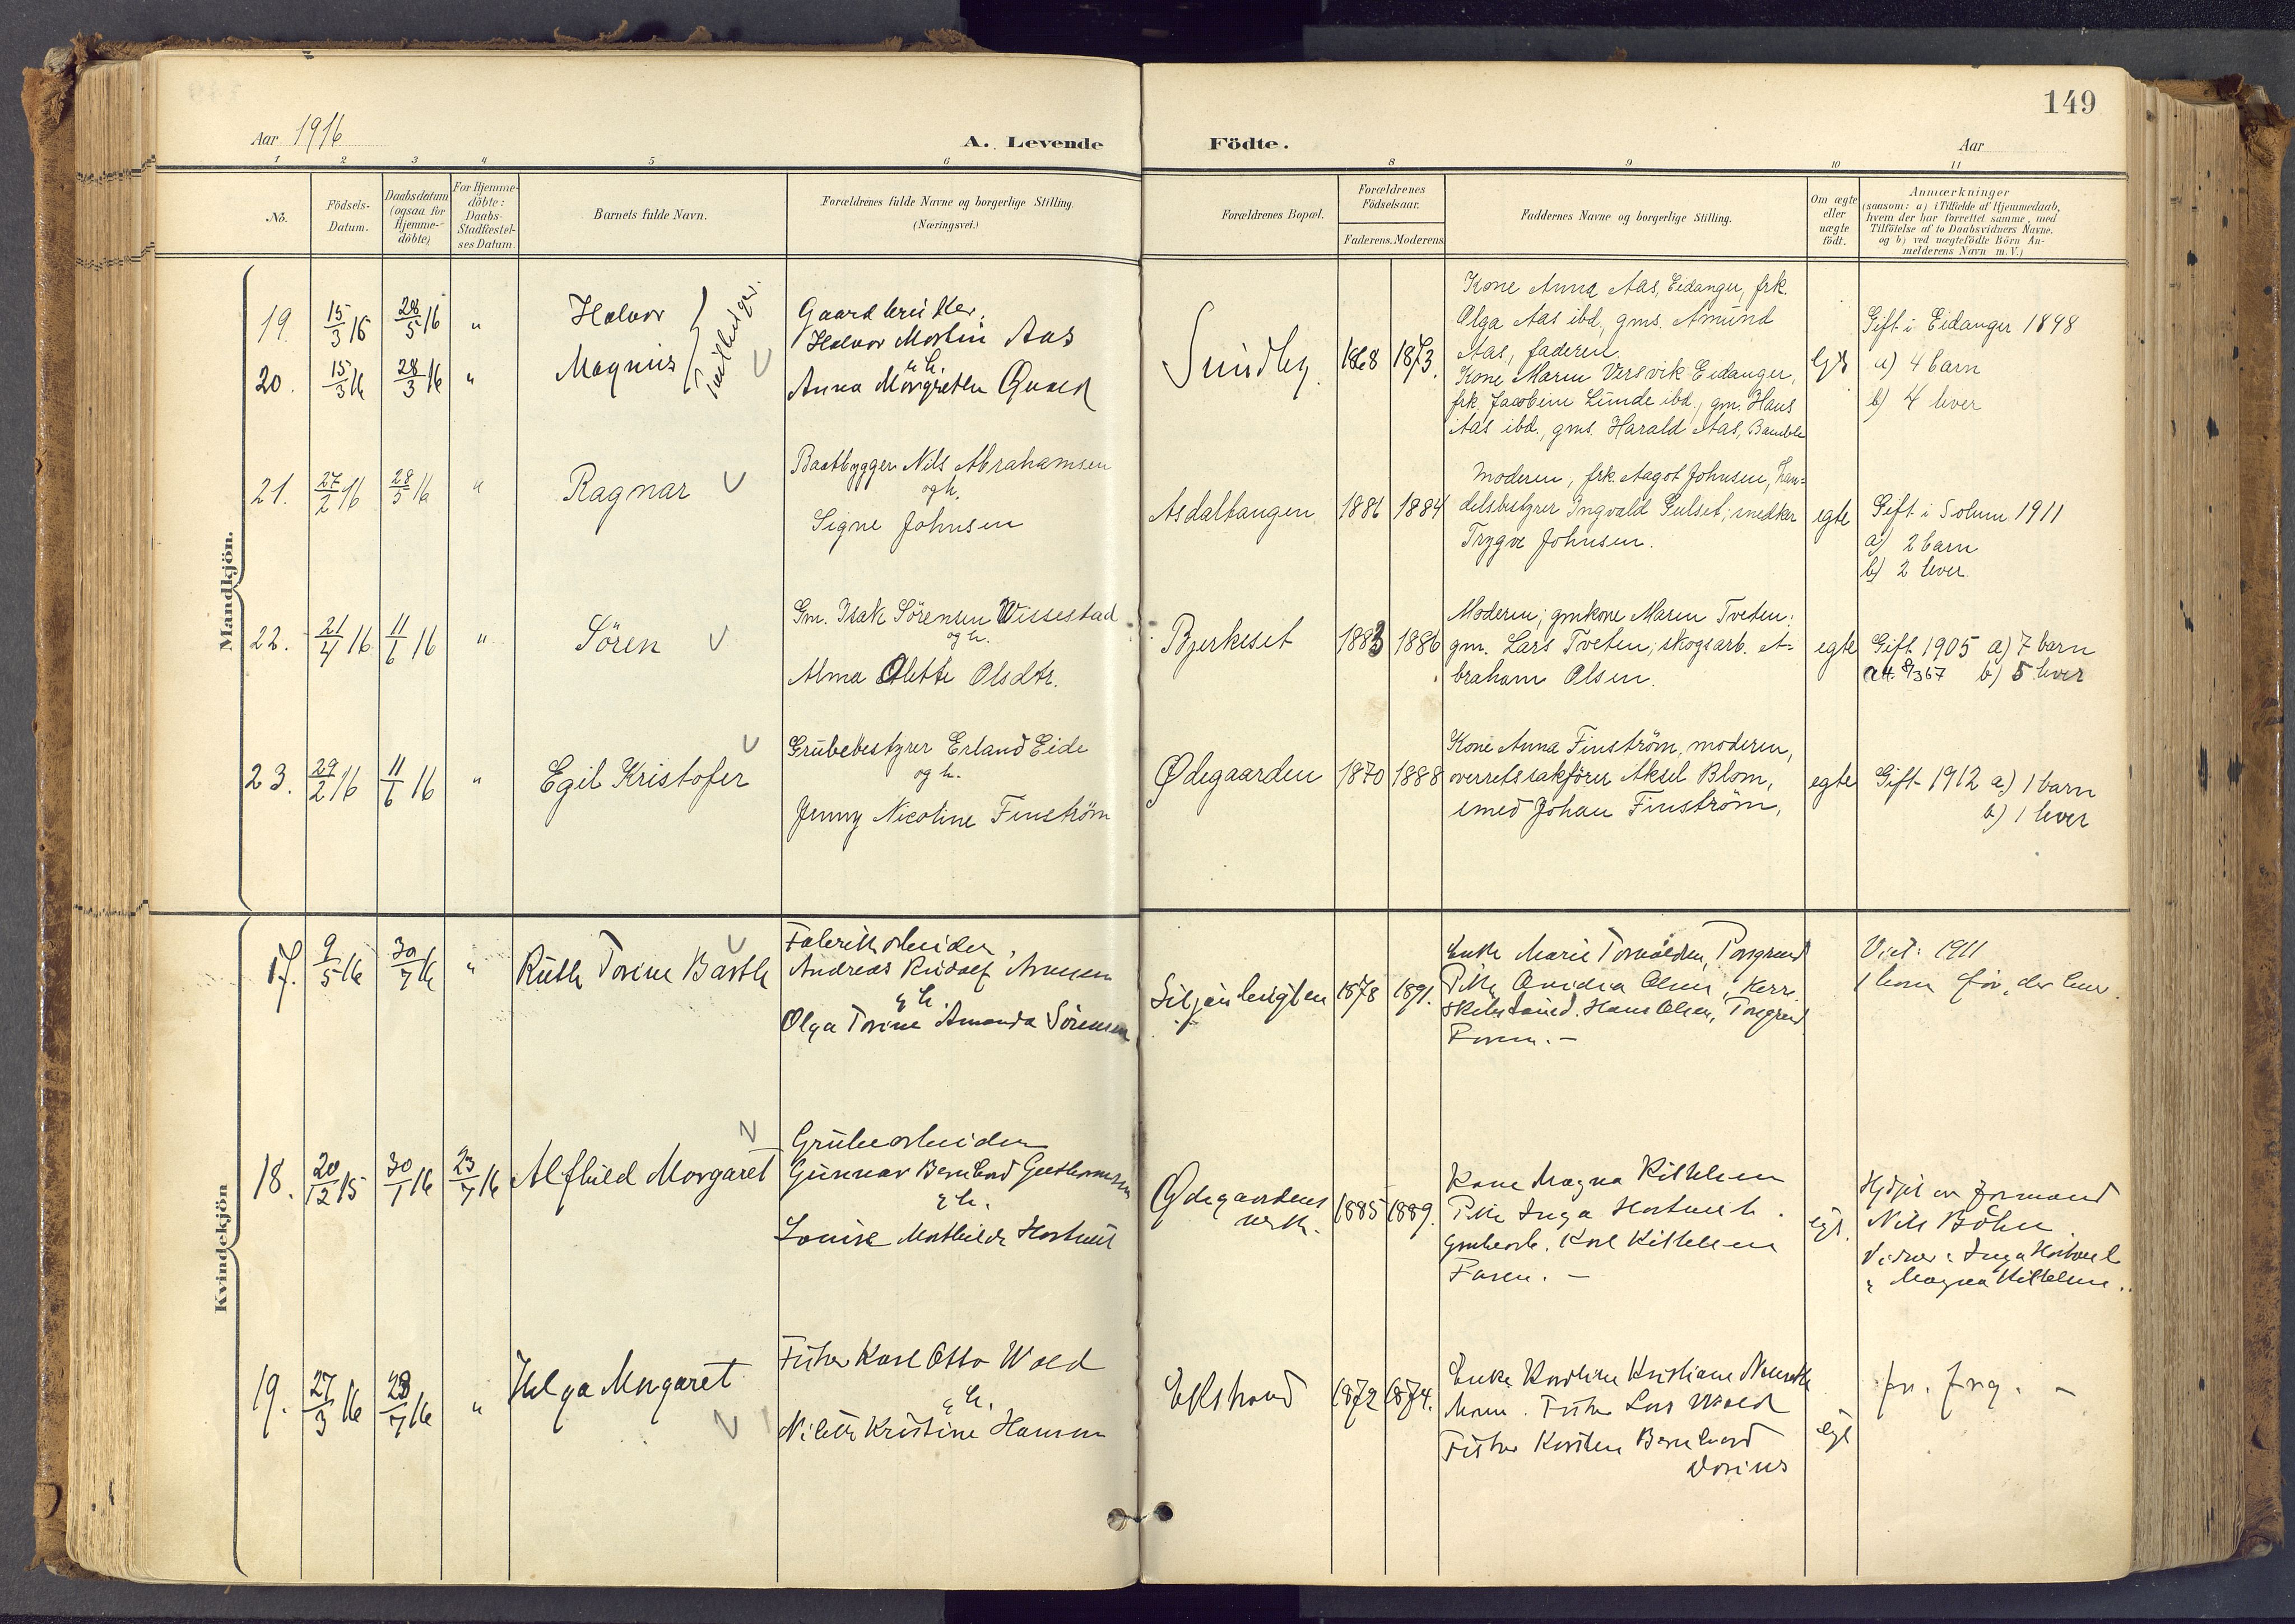 149
Aar 1916
A. Levende
Födte.
Aar
1 2 3 4 5 6 8 9 10 11
No.
Födsels-
Datum.
Daabsdatum
(ogsaa for
Hjemme-
döbte)
For Hjemme-
döbte:
Daabs-
Stadfæstel-
ses Datum.
Barnets fulde Navn.
Forældrenes fulde Navne og borgerlige Stilling.
(Næringsvei.)
Forældrenes Bopæl.
Forældrenes
Födselsaar.
Faderens. Moderens
Faddernes Navne og borgerlige Stilling.
Om ægte
eller
uægte
födt.
Anmærkninger
(saasom: a) i Tilfælde af Hjemmedaab,
hvem der har forrettet samme, med
Tilföielse af to Daabsvidners Navne.
og b) ved uægtefödte Börn An-
melderens Navn m. V.)
Mandkjön.
19. 15/3 16 28/5 16 " Halvor
20. 15/3 16 28/3 16 " Magnus
Tvillinger.
Gaardbruker
Halvor Martin Aas
& h.
Anna Margrethe
Sundby. 1868 1873.
Kone Anna Aas, Eidanger, frk.
Olga Aas ibd., gms. Amund
Aas, faderen.
Kone Maren Versvik Eidanger,
frk. Jacobine Lunde ibd., gm. Hans
Aas ibd., gms. Harald Aas, Bamble
Gift i Eidanger 1898
a) 4 barn
b) 4 lever
21. 27/2 16 28/5 16 " Ragnar
Baatbygger Nils Abrahamsen
og h.
Signe Johnsen
Asdaltangen 1886 1884
Moderen, frk. Aagot Johnsen, han-
delsbestyrer Ingvald Gulset; snedker
Trygve Johnsen.
egte
Gift i Solum 1911
a) 2 barn
b) 2 lever.
22. 21/4 16 11/6 16 " Sören
Gm. Isak Sörensen Wissestad
og h.
Alma Olette Olsdtr.
Bjerkeset 1883 1886
Moderen; gmkone Maren Tveten;
gm. Lars Tveten; skogsarb. A-
braham Olsen.
egte
Gift 1905 a) 7 barn
att. 8/367 b) 5 lever
23. 29/2 16 11/6 16 " Egil Kristofer
Grubebestyrer Erland Eide
og h.
Jenny Nicoline Finström
Ødegaarden 1870 1888
Kone Anna Finström, moderen,
overretssakförer Aksel Blom,
smed Johan Finström,
egte
Gift 1912 a) 1 barn
b) 1 lever
Kvindekjön
17. 9/5 16 30/7 16 " Ruth Torine Barth
Fabrikarbeider
Andreas Rudolf
& h.
Olga Torine Amanda Sörensen
1878 1891.
Enke Marie Torvaldsen, Porsgrund
Pike Olsen,
Hans Olsen, Porsgrund
Faren. -
Viet: 1911
1 barn för, der lever.
18. 20/12 15 30/1 16 23/7 16 Alfhild Margaret
Grubearbeider
Gunnar Bernhard
& h.
Louise Mathilde Hortveit
Ødegaardens
verk. 1885 1889.
Kone Magna Kittelsen
Pike Inga Hortveit.
Grubearb. Karl Kittelsen
Faren. -
egt.
Hjdpt av formand
Nils Böhn
Vidner: Inga Hortveit
& Magna Kittelsen.
19. 27/3 16 23/7 16 " Helga Margaret
Fisker Karl Otto Wold
& h.
Nilette Kristine Hansen
Ekstrand 1872 1874.
Enke Karoline Kristiane
Moren. Fisker Lars Wold
Fisker Karsten Bernhard
egt
fr. frg. -